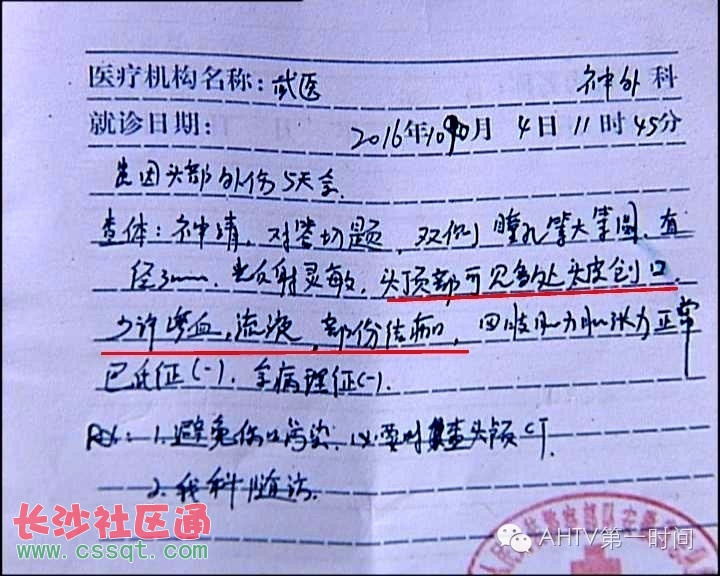 医疗机构名称: 武医 神外科
就诊日期: 2016年10月4日11时45分
因头部外伤5天余
查体: 神清, 对答切题, 双侧瞳孔等大等圆, 直
径3mm, 光反射灵敏, 头顶部可见多处头皮创口,
少许渗血, 流液, 部份结痂, 四肢肌力肌张力正常
巴氏征(-). 病理征(-).
Rx: 1. 避免伤口污染, 必要时复查头颅CT.
2. 我科随访.
长沙社区通
www.cssqt.com
AHTV第一时间